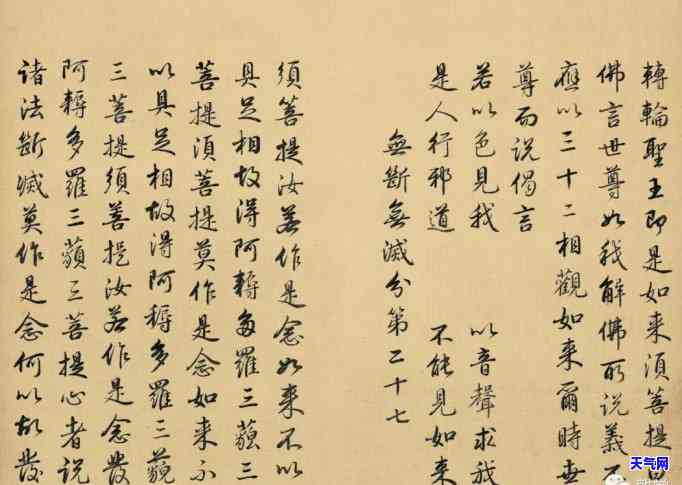 轉輪聖王即是如来須菩提白
佛言世尊如我解佛所說義不
應以三十二相觀如来爾時世
尊而說偈言
若以色見我 以音聲求我
是人行邪道 不能見如来
無斷無滅分第二十七
須菩提汝若作是念如来不以
具足相故得阿耨多羅三藐三
菩提須菩提莫作是念如来不
以具足相故得阿耨多羅三藐
三菩提須菩提汝若作是念發
阿耨多羅三藐三菩提心者說
諸法斷滅莫作是念何以故發
天气网